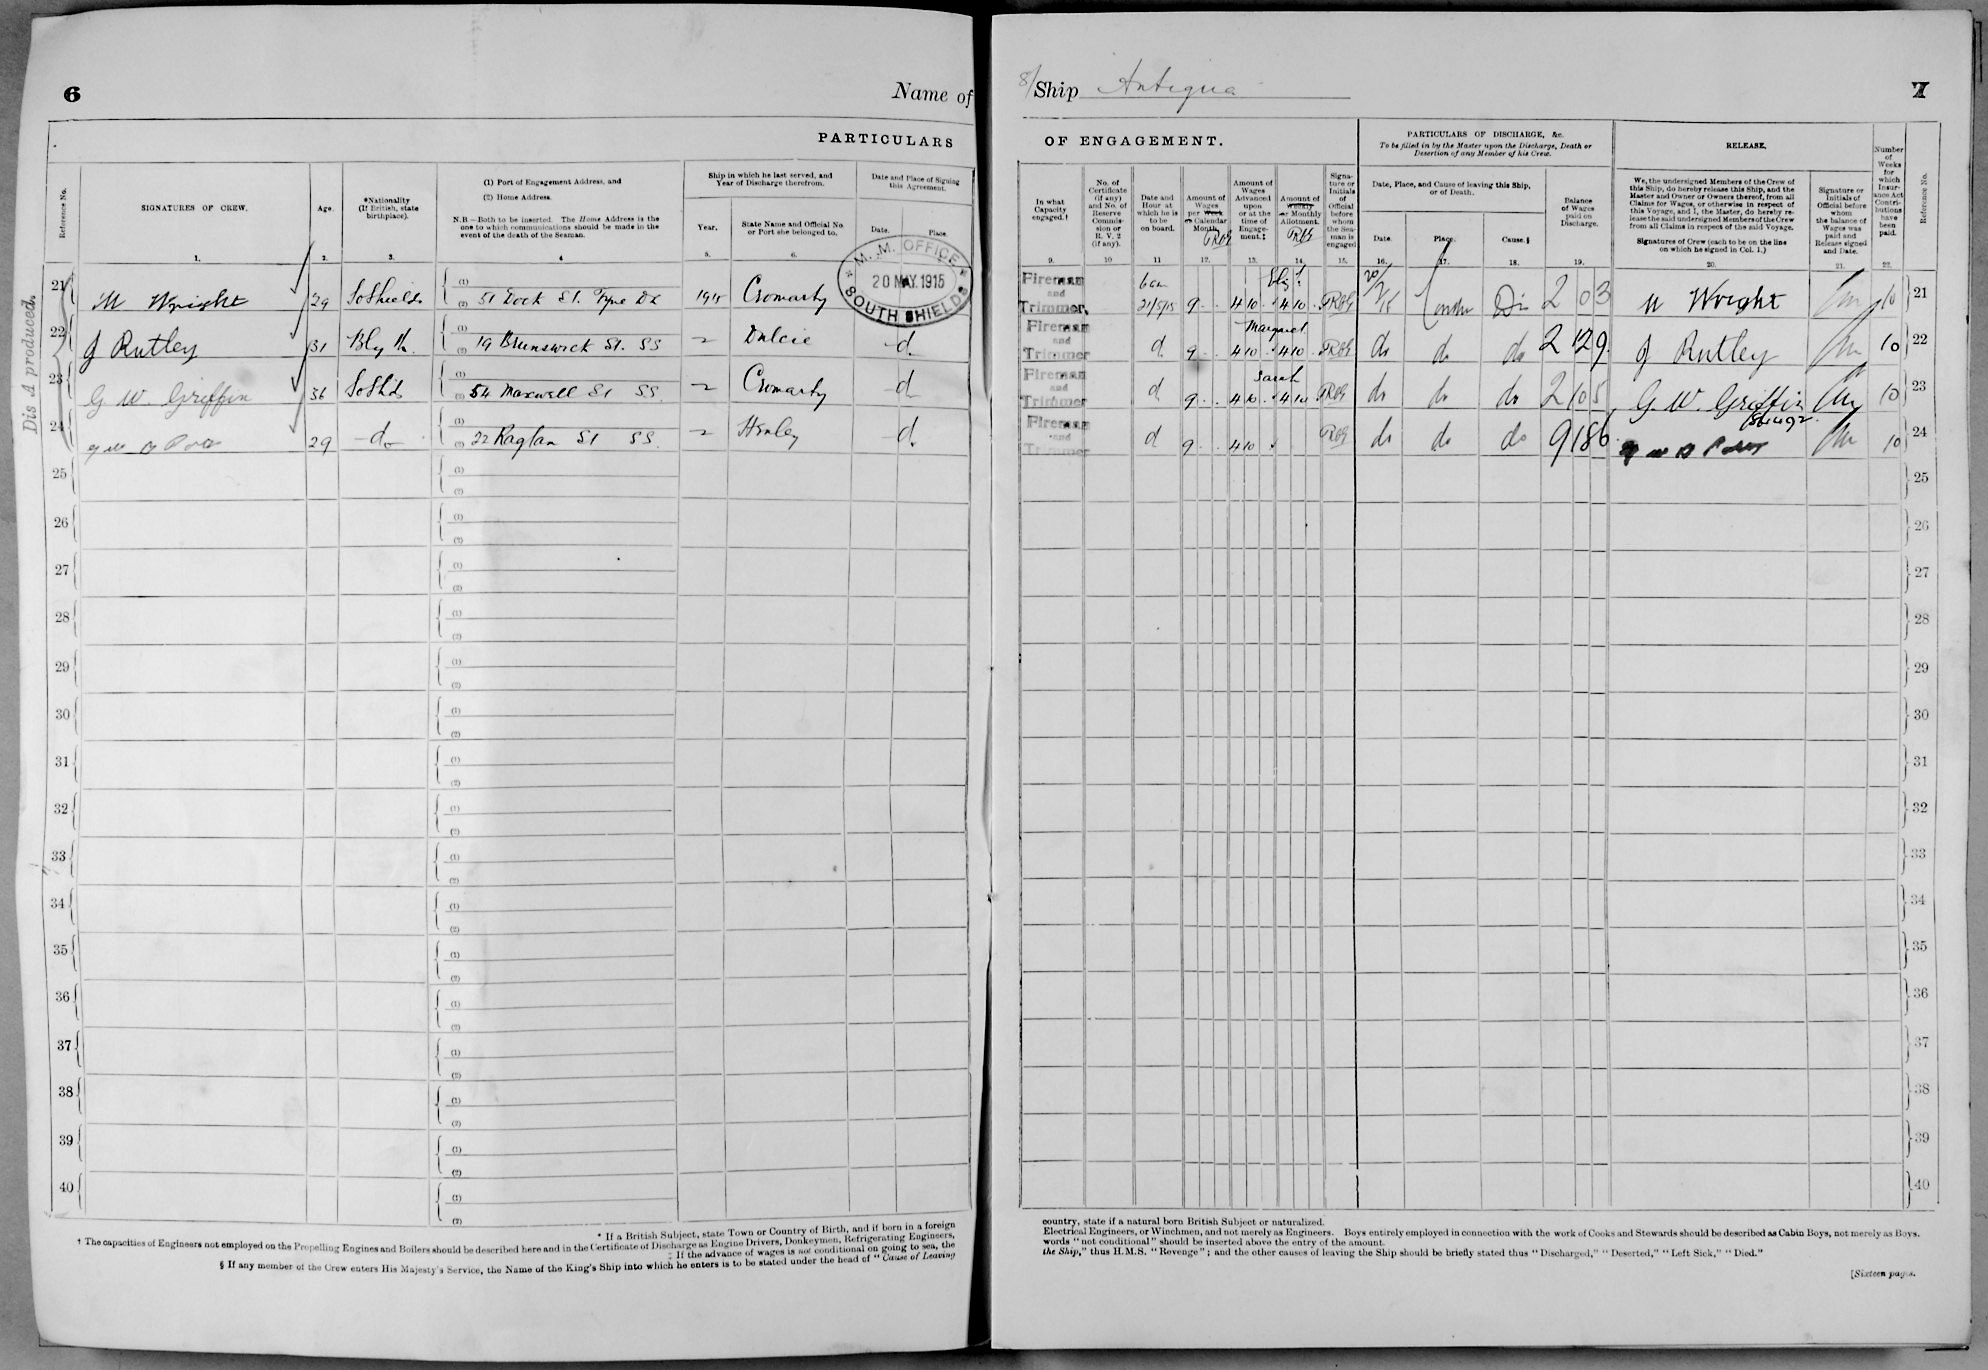 6
Name of
PARTICULARS
Reference No.
SIGNATURES OF CREW.
Age.
*Nationality
(If British, state
birthplace).
(1) Port of Engagement Address, and
(2) Home Address.
N.B.—Both to be inserted. The Home Address is the
one to which communications should be made in the
event of the death of the Seaman.
Ship in which he last served, and
Year of Discharge therefrom.
Year.
State Name and Official No.
or Port she belonged to.
Date and Place of Signing
this Agreement.
Date.
Place.
1. 2. 3. 4 5. 6.
M.M. OFFICE
20 MAY 1915
SOUTH SHIELDS
Dis A produced.
21 M Wright 29 SoShields (1) (2) 51 Dock St. Tyne Dk 1915 Cromarty
22 J Rutley 31 Blyth (1) (2) 19 Brunswick St. SS Dulcie d.
23 G W. Griffin 36 SoShds (1) (2) 54 Maxwell St SS. Cromarty d
24 29 do (1) (2) 22 Raglan St SS. Henley d.
25 (1) (2)
26 (1) (2)
27 (1) (2)
28 (1) (2)
29 (1) (2)
30 (1) (2)
31 (1) (2)
32 (1) (2)
33 (1) (2)
34 (1) (2)
35 (1) (2)
36 (1) (2)
37 (1) (2)
38 (1) (2)
39 (1) (2)
40 (1) (2)
* If a British Subject, state Town or Country of Birth, and if born in a foreign
† The capacities of Engineers not employed on the Propelling Engines and Boilers should be described here and in the Certificate of Discharge as Engine Drivers, Donkeymen, Refrigerating Engineers,
‡ If the advance of wages is not conditional on going to sea, the
§ If any member of the Crew enters His Majesty's Service, the Name of the King's Ship into which he enters is to be stated under the head of "Cause of Leaving
8/ Ship Antigua
7
OF ENGAGEMENT.
PARTICULARS OF DISCHARGE, &c.
To be filled in by the Master upon the Discharge, Death or
Desertion of any Member of his Crew.
RELEASE.
In what
Capacity
engaged.†
No. of
Certificate
(if any)
and No. of
Reserve
Commis-
sion or
R. V. 2
(if any).
Date and
Hour at
which he is
to be
on board.
Amount of
Wages
per Week
or Calendar
Month.
Amount of
Wages
Advanced
upon
or at the
time of
Engage-
ment.‡
Amount of
Weekly
or Monthly
Allotment.
Signa-
ture or
Initials
of
Official
before
whom
the Sea-
man is
engaged
Date, Place, and Cause of leaving this Ship,
or of Death.
Date.
Place.
Cause.§
Balance
of Wages
paid on
Discharge.
We, the undersigned Members of the Crew of
this Ship, do hereby release this Ship, and the
Master and Owner or Owners thereof, from all
Claims for Wages, or otherwise in respect of
this Voyage, and I, the Master, do hereby re-
lease the said undersigned Members of the Crew
from all Claims in respect of the said Voyage.
Signatures of Crew (each to be on the line
on which he signed in Col. 1.)
Signature or
Initials of
Official before
whom
the balance of
Wages was
paid and
Release signed
and Date.
Number
of
Weeks
for
which
Insur-
ance Act
Contri-
butions
have
been
paid.
Reference No.
9. 10 11 12. 13. 14. 15. 16. 17. 18. 19. 20. 21. 22.
Fireman and Trimmer. 6am 21/5/15 9 4 10 4 10 London Dis 2 0 3 M Wright 10 21
Margaret
Fireman and Trimmer d 9 4 10 4 10 do do do 2 12 9 J Rutley 10 22
Sarah
Fireman and Trimmer d 9 4 10 4 10 do do do 2 10 5 G. W. Griffin 10 23
Fireman and Trimmer d 9 4 10 do do do 9 18 6 10 24
25
26
27
28
29
30
31
32
33
34
35
36
37
38
39
40
country, state if a natural born British Subject or naturalized.
Electrical Engineers, or Winchmen, and not merely as Engineers. Boys entirely employed in connection with the work of Cooks and Stewards should be described as Cabin Boys, not merely as Boys.
words "not conditional" should be inserted above the entry of the amount.
the Ship," thus H.M.S. "Revenge"; and the other causes of leaving the Ship should be briefly stated thus "Discharged," "Deserted," "Left Sick," "Died."
[Sixteen pages.